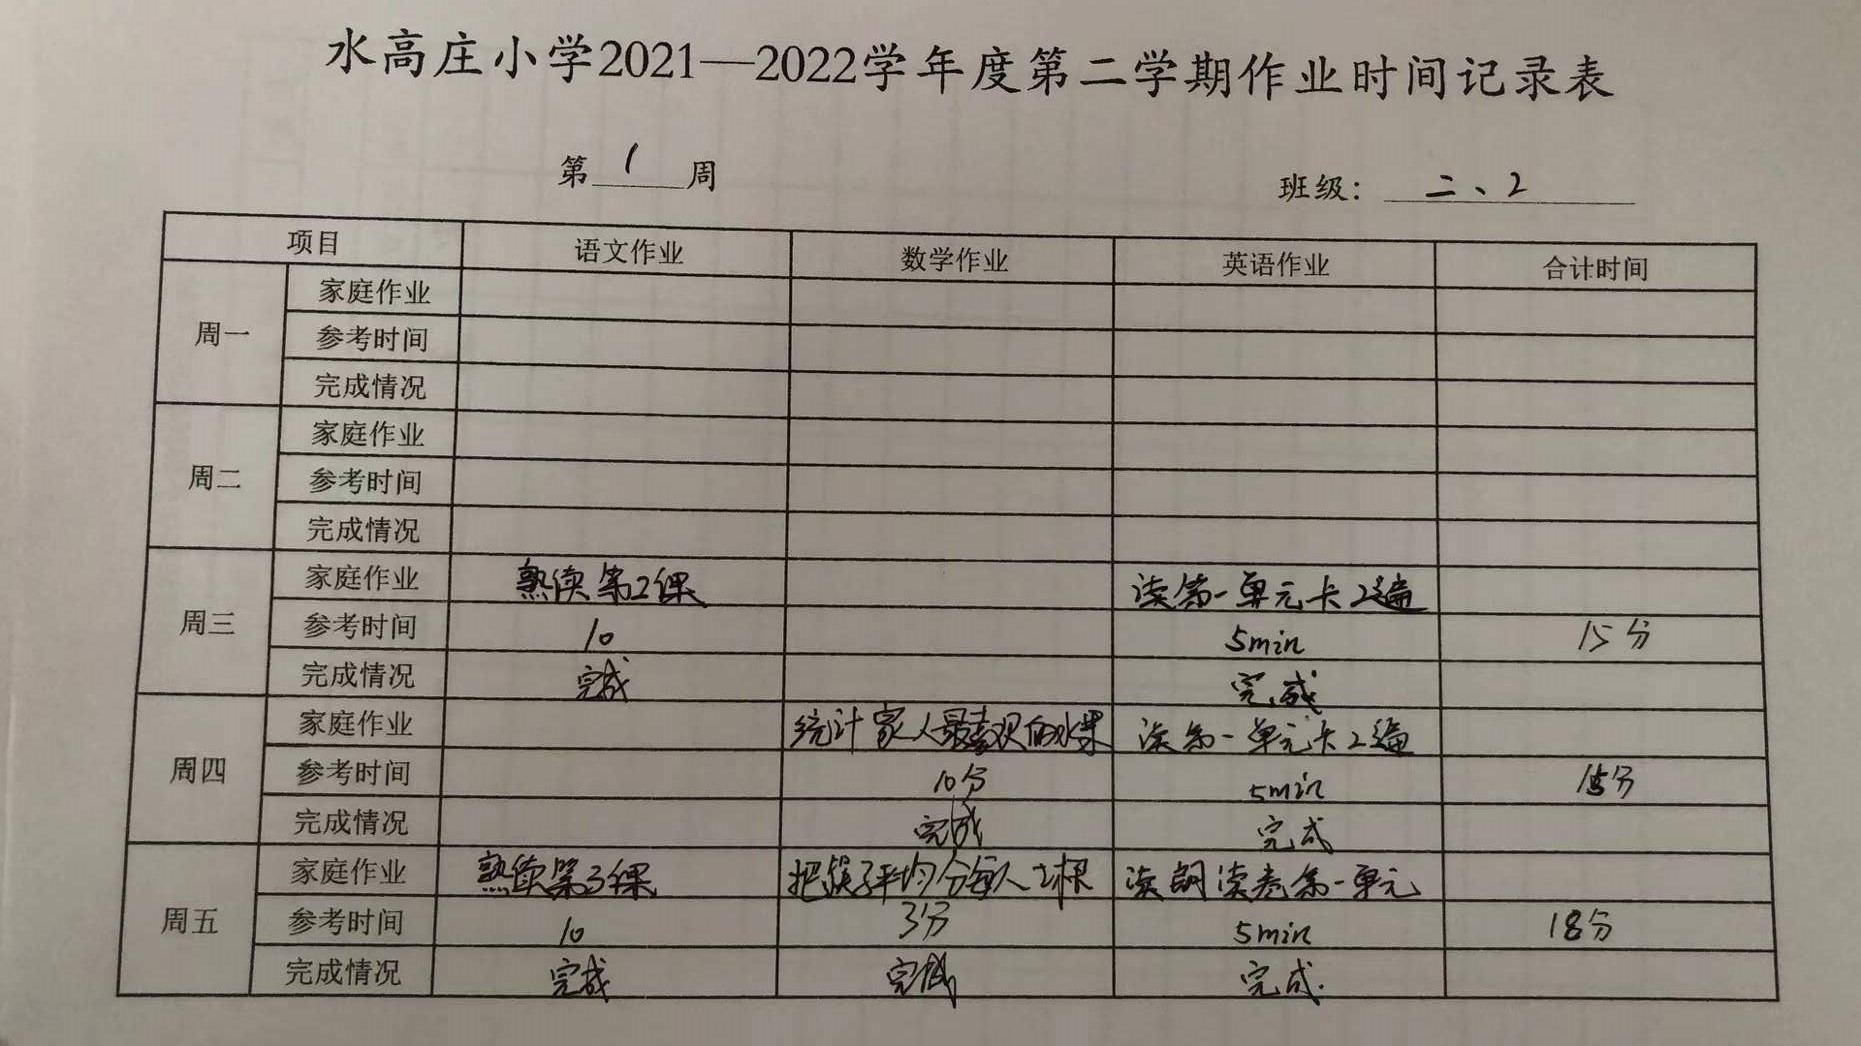 水高庄小学2021—2022学年度第二学期作业时间记录表
第 1 周 班级: 二、2
项目 语文作业 数学作业 英语作业 合计时间
周一 家庭作业
参考时间
完成情况
周二 家庭作业
参考时间
完成情况
周三 家庭作业 熟读第2课 读第一单元卡2遍
参考时间 10 5min 15分
完成情况 完成 完成
周四 家庭作业 统计家人最喜欢的水果 读第一单元卡2遍
参考时间 10分 5min 15分
完成情况 完成 完成
周五 家庭作业 熟读第3课 把筷子平均分每人2根 读朗读卷第一单元
参考时间 10 3分 5min 18分
完成情况 完成 完成 完成.